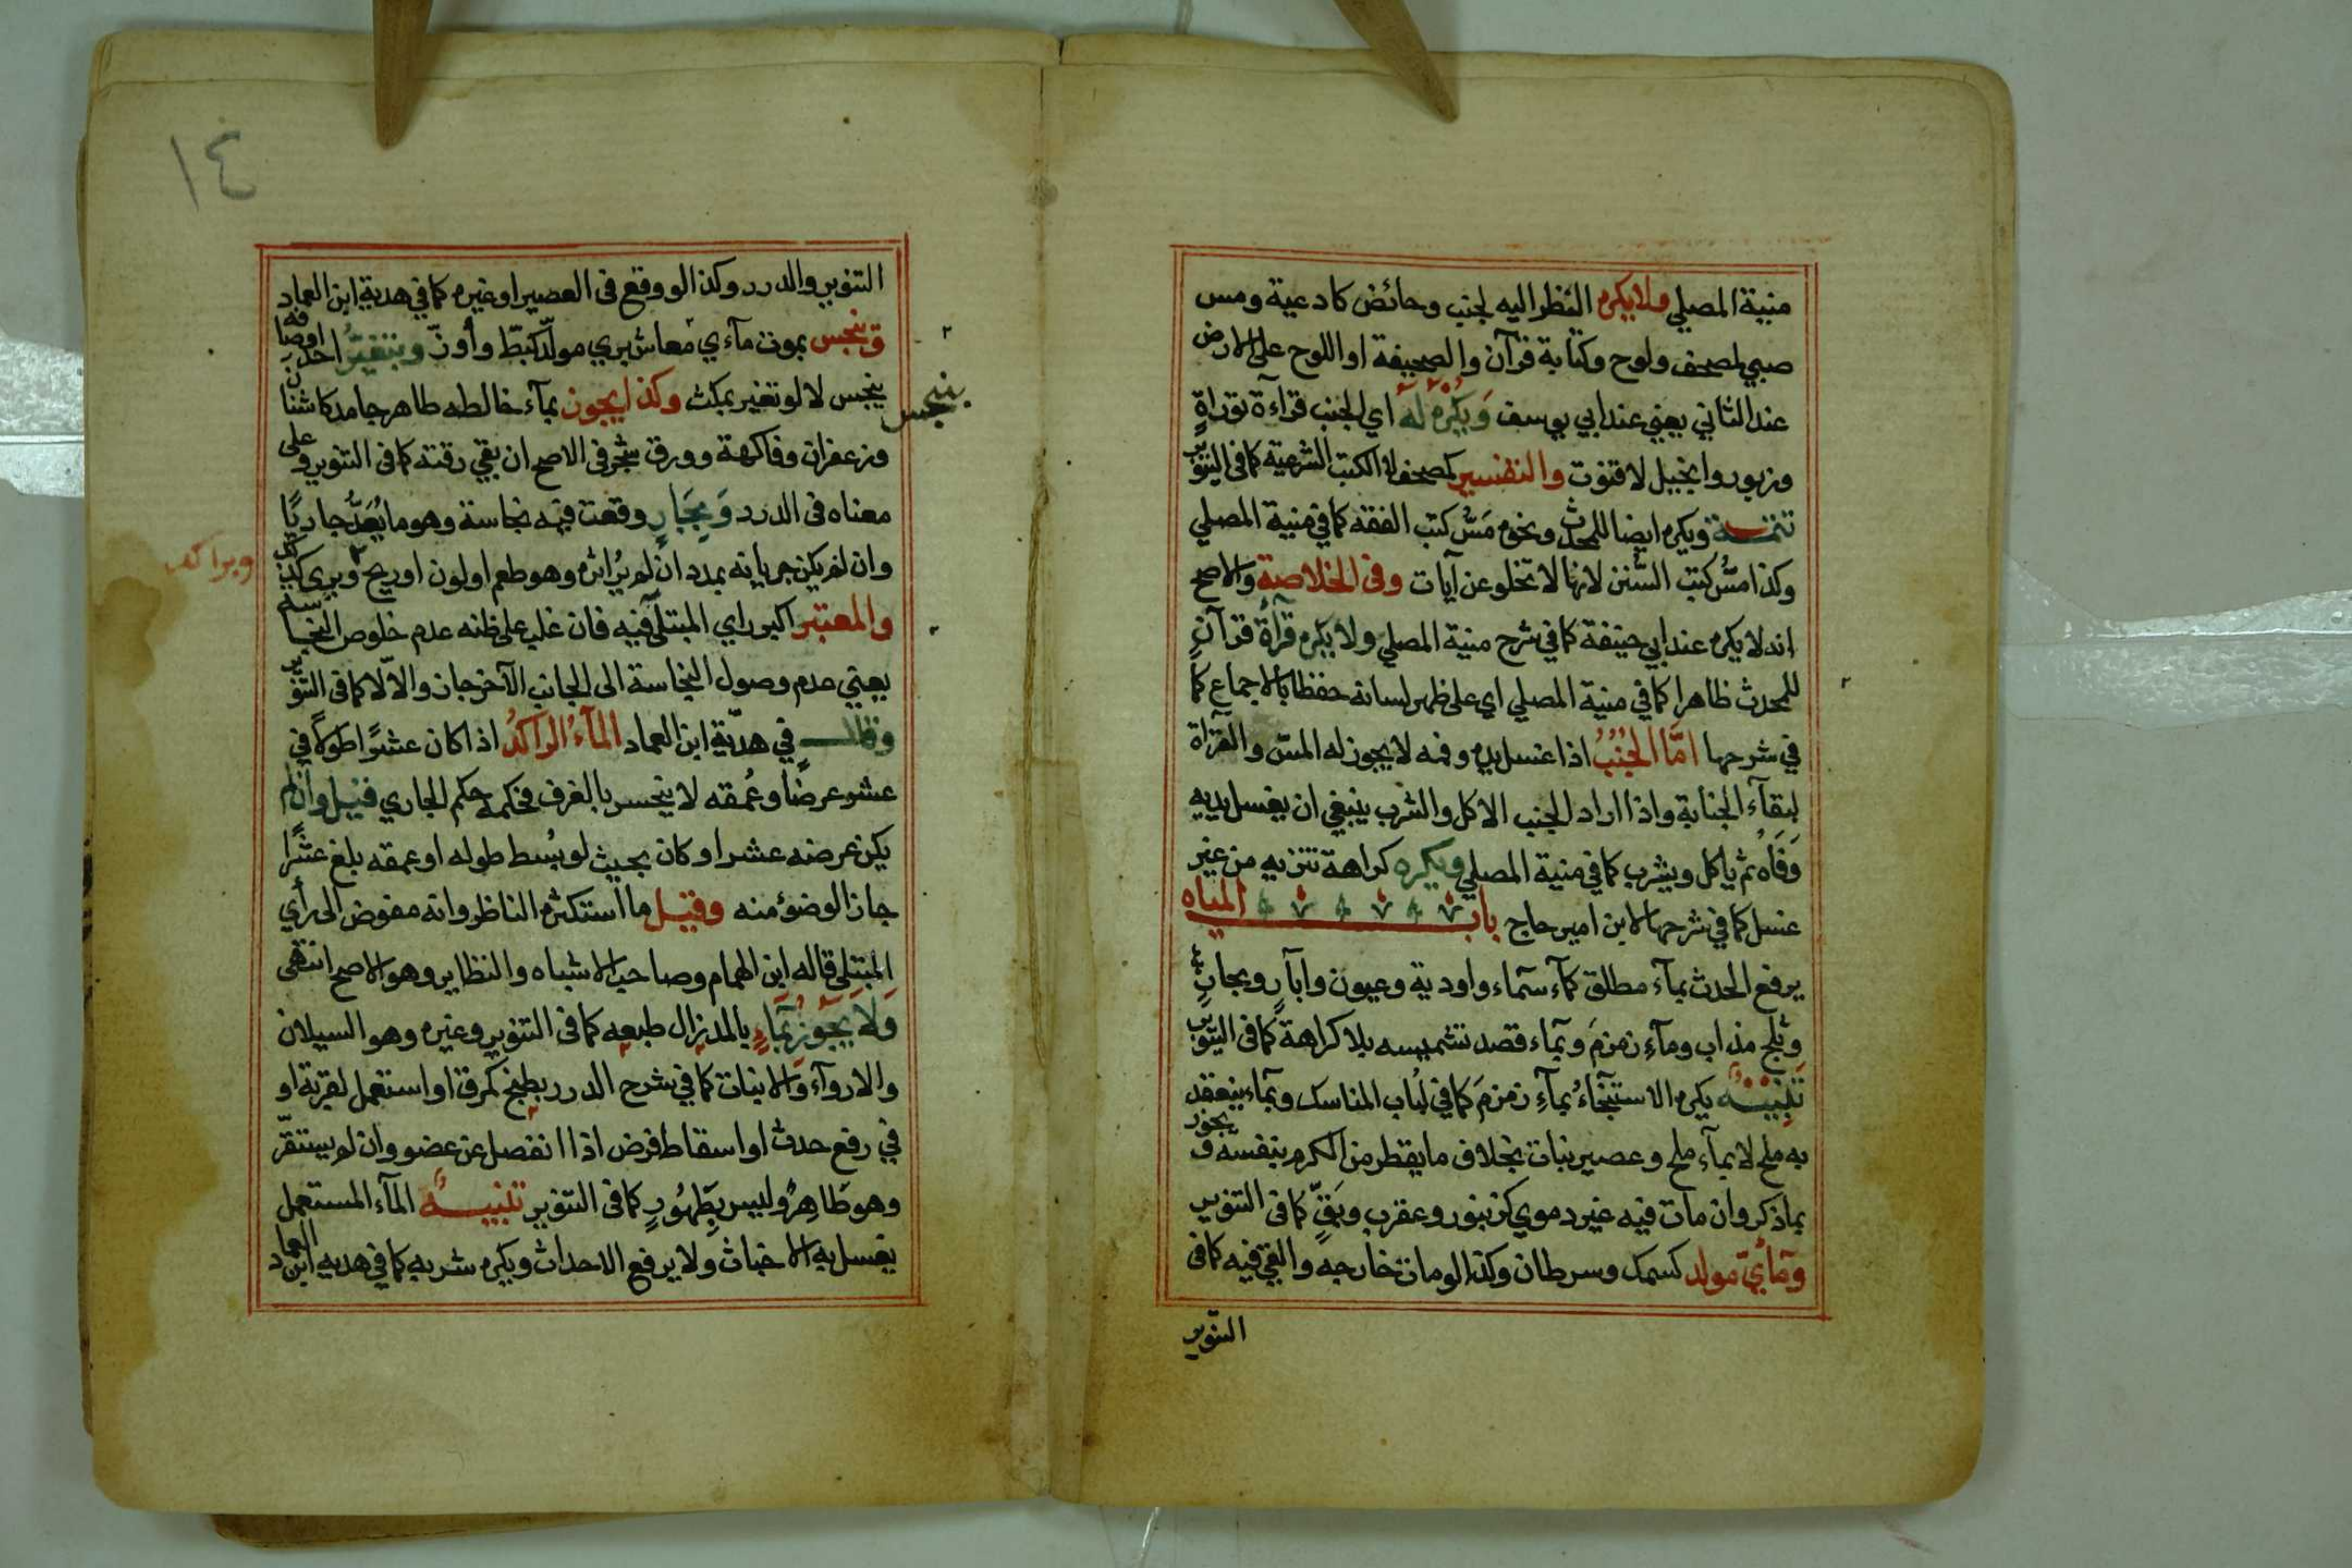 منية المصلي ولا يكره النظر اليه لجنب وحائض كادعية ومس
صبي لمصحف ولوح وكتابة قرآن والصحيفة او اللوح على الارض
عند الثاني يعني عند ابي يوسف وَيُكره له اي الجنب قرآءة توراةٍ
وزبور وانجيل لا قنوت والتفسير كمصحف لا الكتب الشرعية كما في التنوير
تتمـــة ويكره ايضا للمحدث ونحوه مَسُّ كتب الفقه كما في منية المصلي
وكذا مسُّ كتب السُّنن لانها لا تخلو عن آيات وفي الخلاصة والاصح
انه لا يكره عند ابي حنيفة كما في شرح منية المصلي ولا يكره قرآءة قرآنٍ
للمحدث ظاهرا كما في منية المصلي اي على ظهر لسانه حفظا بالاجماع كما
في شرحها امّا الجُنُبُ اذا غسل يده وفمه لا يجوز له المسّ والقرآءة
لبقآء الجنابة واذا اراد الجنب الاكل والشرب ينبغي ان يغسل يديه
وَفَاه ثم ياكل ويشرب كما في منية المصلي ويكره كراهة تنزيه من غير
غسل كما في شرحها لابن امير حاج باب المياه
يرفع الحدث بمآء مطلق كمآء سمآء واودية وعيون وآبارٍ وبحارٍ
وثلج مذاب ومآءِ زمزمَ وبمآء قصد تشميسه بلا كراهة كما في التنوير
تَنبِيـــهٌ يكره الاستنجآءُ بمآءِ زمزمَ كما في لُباب المناسك وبمآء ينعقد
به ملح لا بمآء ملح وعصير نبات بخلاف ما يقطر من الكرم بنفسه و يجوز
بما ذكر وان مات فيه غير دموي كزنبور وعقرب وبَقٍّ كما في التنوير
ومآئيّ مولد كسمك وسرطان وكذا لو مات خارجه والقي فيه كما في
التنوير
١٤
التنوير والدرر وكذا لو وقع في العصير او غيره كما في هدية ابن العماد
وينجس بموت مآءي معاش بري مولد كبطّ وأوزّ وبتغيّر احد اوصافه
ينجس
بنجس لا لو تغير بمكث وكذا يجوز بمآء خالطه طاهر جامد كاشنان
وزعفران وفاكهة وورق شجر في الاصح ان بقي رقته كما في التنوير وعلى
معناه في الدرر وَبِجَارٍ وقعت فيه نجاسة وهو ما يُعَدُّ جاريًا
وان لم يكن جريانه بمدد ان لم يُر اثره وهو طعم او لون او ريح وبراكد
وبراكد
والمعتبر اكبر راي المبتلى فيه فان غلب على ظنه عدم خلوص النجاسة
يعني عدم وصول النجاسة الى الجانب الآخر جاز والّا لا كما في التنوير
وقالـــ في هديّة ابن العماد المآءُ الراكدُ اذا كان عشرًا طولًا في
عشر عرضًا وعُمقه لا ينحسر بالغرف فحكمه حكم الجاري قيل وان لم
يكن عرضه عشرا وكان بحيث لو بُسط طوله او عمقه بلغ عشرًا
جاز الوضوء منه وقيـل ما استكثره الناظر وانه مفوض الى رأي
المبتلى قاله ابن الهمام وصاحب الاشباه والنظاير وهو الاصح انتهى
وَلَا يَجُوزُ بمآءٍ بالمد زال طبعه كما في التنوير وغيره وهو السيلان
والاروآء والانبات كما في شرح الدرر بطبخ كمرقة او استعمل لقربة او
في رفع حدث او اسقاط فرض اذا انفصل عن عضو وان لم يستقرّ
وهو طَاهِرٌ وليس بِطَهُورٍ كما في التنوير تنبيـــهٌ المآء المستعمل
يغسل به الاخباث ولا يرفع الاحداث ويكره شربه كما في هدية ابن العماد